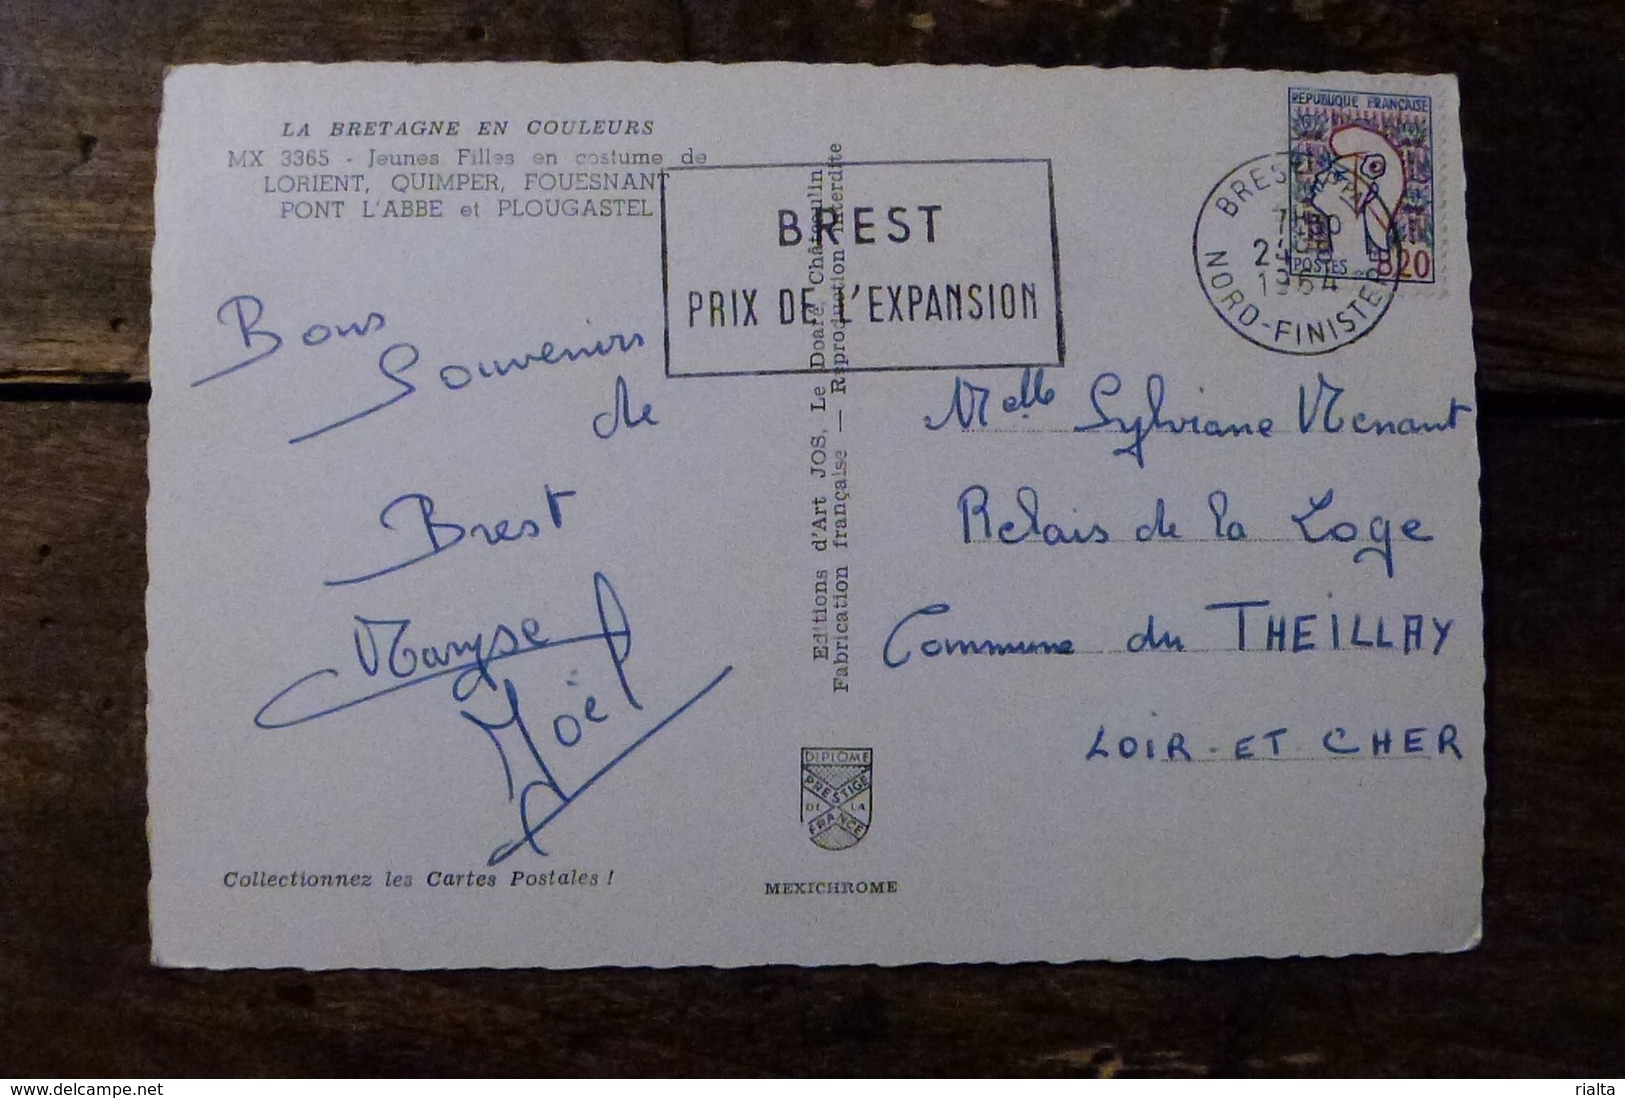 LA BRETAGNE EN COULEURS
MX 3365 - Jeunes Filles en costume de
LORIENT, QUIMPER, FOUESNANT
PONT L'ABBE et PLOUGASTEL
Bons
Souvenirs
de
Brest
Maryse
Joël
Collectionnez les Cartes Postales !
BREST
PRIX DE L'EXPANSION
Editions d'Art JOS, Le Doaré, Châteaulin
Fabrication française — Reproduction interdite
DIPLOME
PRESTIGE
DE LA
FRANCE
MEXICHROME
REPUBLIQUE FRANÇAISE
POSTES 0.20
BREST
NORD-FINISTERE
Melle Sylviane Menant
Relais de la Loge
Commune du THEILLAY
LOIR-ET CHER
© delcampe.net
rialta